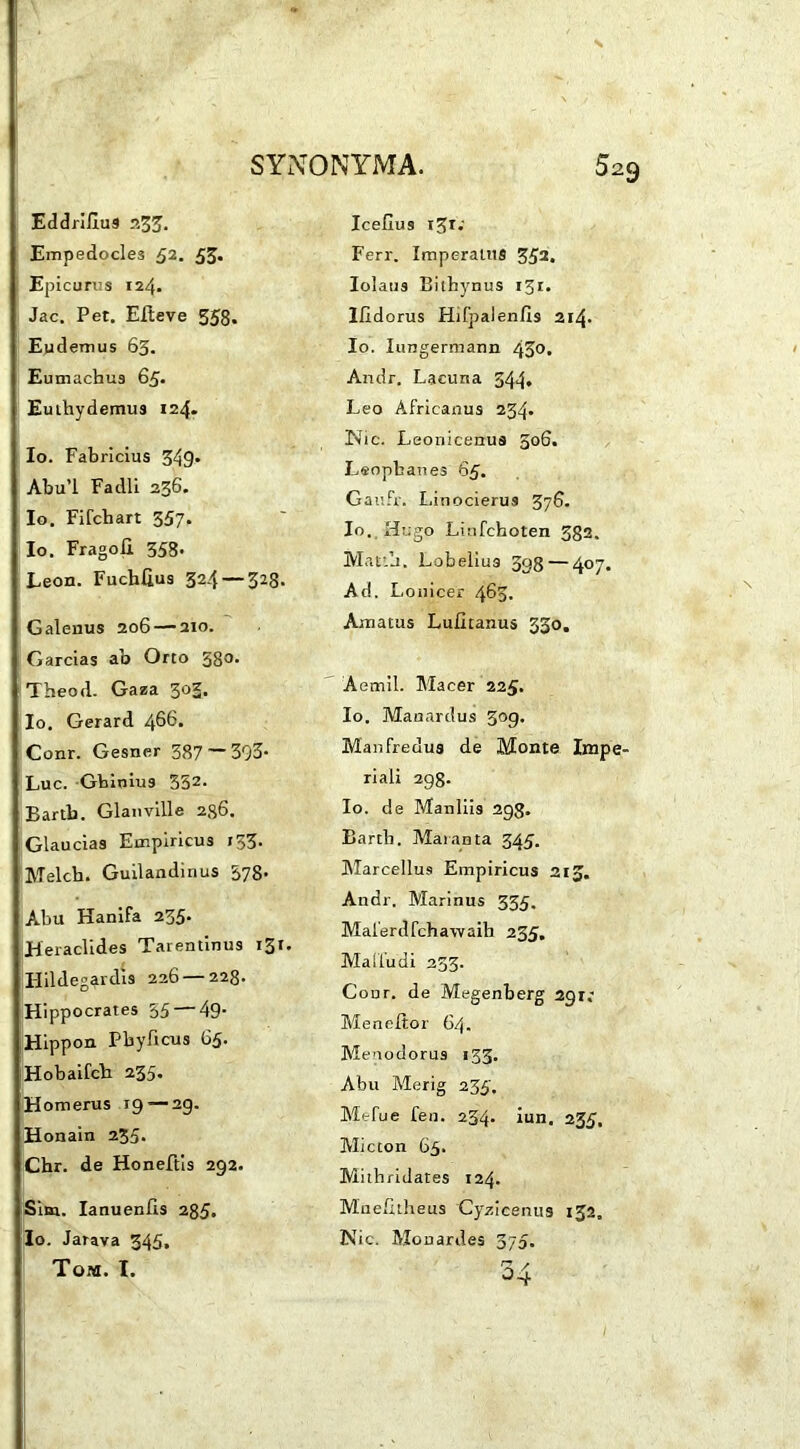 SYNONYMA. 529
Eddriſius 233.
Empedocles 52. 53.
Epicurus 124.
Jac. Pet. Eſteve 358.
Eudemus 63.
Eumachus 65.
Euthydemus 124.
Io. Fabricius 349.
Abu'l Fadli 236.
Io. Fiſchart 357.
Io. Fragoſi 358.
Leon. Fuchſius 324 — 328.
Galenus 206 — 210.
Garcias ab Orto 380.
Theod. Gaza 303.
Io. Gerard 466.
Conr. Gesner 387 — 393.
Luc. Ghinius 332.
Barth. Glanville 286.
Glaucias Empiricus 133.
Melch. Guilandinus 378.
Abu Hanifa 235.
Heraclides Tarentinus 131.
Hildegardis 226 — 228.
Hippocrates 35 — 49.
Hippon Phyſicus 65.
Hobaiſch 235.
Homerus 19 — 29.
Honain 235.
Chr. de Honeſtis 292.
Sim. Ianuenſis 285.
Io. Jarava 345.
Tom. I.
Iceſius 131.
Ferr. Imperatus 352.
Iolaus Bithynus 131.
Iſidorus Hiſpalenſis 214.
Io. Iungermann 430.
Andr. Lacuna 344.
Leo Africanus 234.
Nic. Leonicenus 306.
Leophanes 65.
Gaufr. Linocierus 376.
Io. Hugo Linſchoten 382.
Matth. Lobelius 398 — 407.
Ad. Lonicer 463.
Amatus Luſitanus 330.
Aemil. Macer 225.
Io. Manardus 309.
Manfredus de Monte Impe-
riali 298.
Io. de Manliis 298.
Barth. Maranta 345.
Marcellus Empiricus 213.
Andr. Marinus 335.
Maſerdſchawaih 235.
Maſſudi 233.
Conr. de Megenberg 291.
Meneſtor 64.
Menodorus 133.
Abu Merig 235.
Meſue ſen. 234. iun. 235.
Micton 65.
Mithridates 124.
Mneſitheus Cyzicenus 132.
Nic. Monardes 375.
34